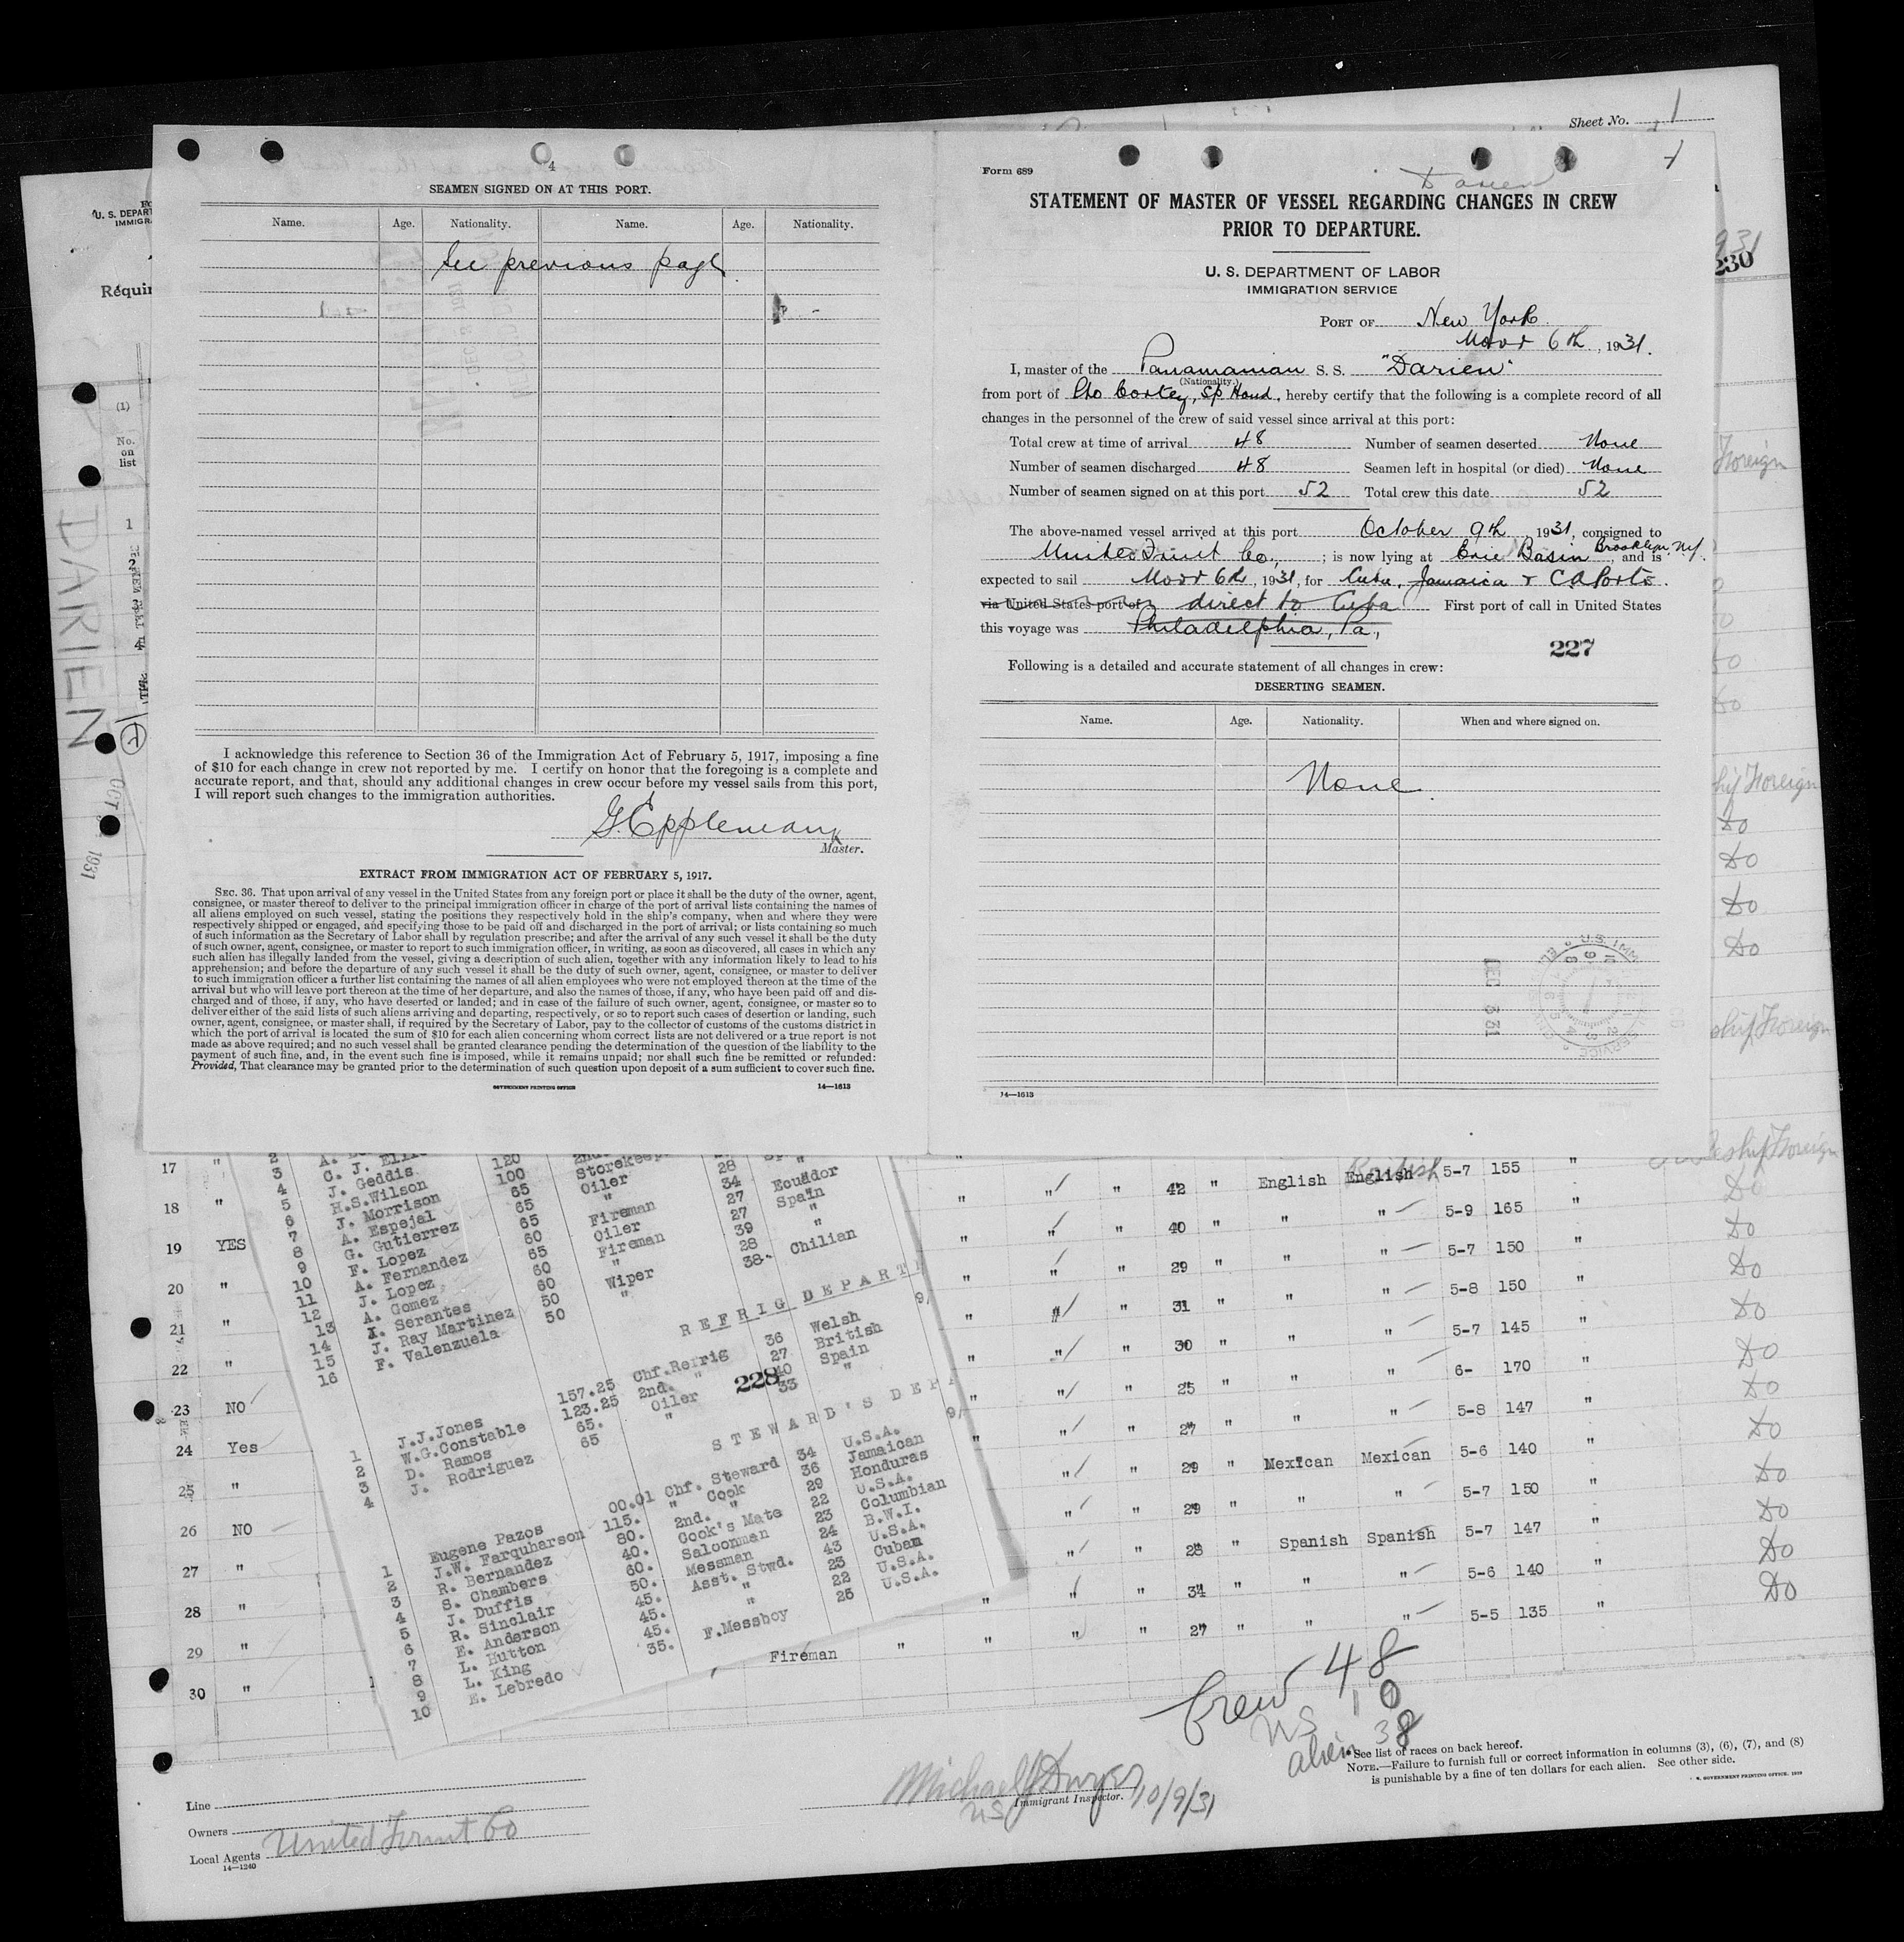 Sheet No. 1
4
SEAMEN SIGNED ON AT THIS PORT.
Name. Age. Nationality. Name. Age. Nationality.
See previous page.
I acknowledge this reference to Section 36 of the Immigration Act of February 5, 1917, imposing a fine
of $10 for each change in crew not reported by me. I certify on honor that the foregoing is a complete and
accurate report, and that, should any additional changes in crew occur before my vessel sails from this port,
I will report such changes to the immigration authorities.
G. Eppleman
Master.
EXTRACT FROM IMMIGRATION ACT OF FEBRUARY 5, 1917.
SEC. 36. That upon arrival of any vessel in the United States from any foreign port or place it shall be the duty of the owner, agent,
consignee, or master thereof to deliver to the principal immigration officer in charge of the port of arrival lists containing the names of
all aliens employed on such vessel, stating the positions they respectively hold in the ship's company, when and where they were
respectively shipped or engaged, and specifying those to be paid off and discharged in the port of arrival; or lists containing so much
of such information as the Secretary of Labor shall by regulation prescribe; and after the arrival of any such vessel it shall be the duty
of such owner, agent, consignee, or master to report to such immigration officer, in writing, as soon as discovered, all cases in which any
such alien has illegally landed from the vessel, giving a description of such alien, together with any information likely to lead to his
apprehension; and before the departure of any such vessel it shall be the duty of such owner, agent, consignee, or master to deliver
to such immigration officer a further list containing the names of all alien employees who were not employed thereon at the time of the
arrival but who will leave port thereon at the time of her departure, and also the names of those, if any, who have been paid off and dis-
charged and of those, if any, who have deserted or landed; and in case of the failure of such owner, agent, consignee, or master so to
deliver either of the said lists of such aliens arriving and departing, respectively, or so to report such cases of desertion or landing, such
owner, agent, consignee, or master shall, if required by the Secretary of Labor, pay to the collector of customs of the customs district in
which the port of arrival is located the sum of $10 for each alien concerning whom correct lists are not delivered or a true report is not
made as above required; and no such vessel shall be granted clearance pending the determination of the question of the liability to the
payment of such fine, and, in the event such fine is imposed, while it remains unpaid; nor shall such fine be remitted or refunded:
Provided, That clearance may be granted prior to the determination of such question upon deposit of a sum sufficient to cover such fine.
GOVERNMENT PRINTING OFFICE 14—1613
Form 689
Darien
STATEMENT OF MASTER OF VESSEL REGARDING CHANGES IN CREW
PRIOR TO DEPARTURE.
U. S. DEPARTMENT OF LABOR
IMMIGRATION SERVICE
PORT OF New York
Novr 6th, 1931.
I, master of the Panamanian S. S. "Darien"
(Nationality.)
from port of Pto Cortez, Sp Hond, hereby certify that the following is a complete record of all
changes in the personnel of the crew of said vessel since arrival at this port:
Total crew at time of arrival 48 Number of seamen deserted None
Number of seamen discharged 48 Seamen left in hospital (or died) None
Number of seamen signed on at this port 52 Total crew this date 52
The above-named vessel arrived at this port October 9th, 1931, consigned to
United Fruit Co., ; is now lying at Erie Basin Brooklyn, NY, and is
expected to sail Novr 6th, 1931, for Cuba, Jamaica & C A Ports.
via United States port of direct to Cuba First port of call in United States
this voyage was Philadelphia, Pa,
227
Following is a detailed and accurate statement of all changes in crew:
DESERTING SEAMEN.
Name. Age. Nationality. When and where signed on.
None.
DEC 3 31
14—1613
U. S. DEPART
IMMIGRA
Requir
(1)
No.
on
list
1
2
3
4
DARIEN
OCT 1931
230
Foreign
Do
Do
Do
ship Foreign
Do
Do
Do
Do
ship Foreign
ship Foreign
17 "
18 "
19 YES
20 "
21 "
22 "
23 NO
24 Yes
25 "
26 NO
27 "
28 "
29 "
30 "
3 C. J. 120
4 J. Geddis 100 Storekeep 28 "
5 H.S.Wilson 65 Oiler 34 Ecuador
6 J. Morrison 65 " 27 Spain
7 A. Espejal 65 Fireman 27 "
8 G. Gutierrez 60 Oiler 39 "
9 F. Lopez 65 Fireman 28 Chilian
10 A. Fernandez 60 " 38
11 J. Lopez 60 Wiper
12 A. Gomez 50 "
13 X. Serantes 50
14 J. Ray Martinez
15 F. Valenzuela
16
REFRIG DEPART
1 J.J.Jones 157.25 Chf.Refrig 36 Welsh
2 W.G.Constable 123.25 2nd. " 27 British
3 D. Ramos 65. Oiler 40 Spain
4 J. Rodriguez 65 " 33 "
228
STEWARD'S DEP
1 Eugene Pazos 00.01 Chf. Steward 34 U.S.A.
2 J.W. Farquharson 115. " Cook 36 Jamaican
3 R. Bernandez 80. 2nd. " 29 Honduras
4 S. Chambers 40. Cook's Mate 22 U.S.A.
5 J. Duffis 60. Saloonman 23 Columbian
6 R. Sinclair 50. Messman 24 B.W.I.
7 E. Anderson 45. Asst. Stwd. 43 U.S.A.
8 L. Hutton 45. " 23 Cuban
9 L. King 45. " 22 U.S.A.
10 E. Lebredo 35. F.Messboy 25 U.S.A.
Fireman
" " " 42 " English English British 5-7 155 " Do
" " " 40 " " " 5-9 165 " Do
" " " 29 " " " 5-7 150 " Do
" " " 31 " " " 5-8 150 " Do
" " " 30 " " " 5-7 145 " Do
" " " 25 " " " 6- 170 " Do
" " " 27 " " " 5-8 147 " Do
" " " 29 " Mexican Mexican 5-6 140 " Do
" " " 29 " " " 5-7 150 " Do
" " " 28 " Spanish Spanish 5-7 147 " Do
" " " 34 " " " 5-6 140 " Do
" " " 27 " " " 5-5 135 "
Crew 48
US 10
alien 38
*See list of races on back hereof.
NOTE.—Failure to furnish full or correct information in columns (3), (6), (7), and (8)
is punishable by a fine of ten dollars for each alien. See other side.
Michael J Dwyer
US Immigrant Inspector. 10/9/31
Line
Owners
Local Agents United Fruit Co
14—1240